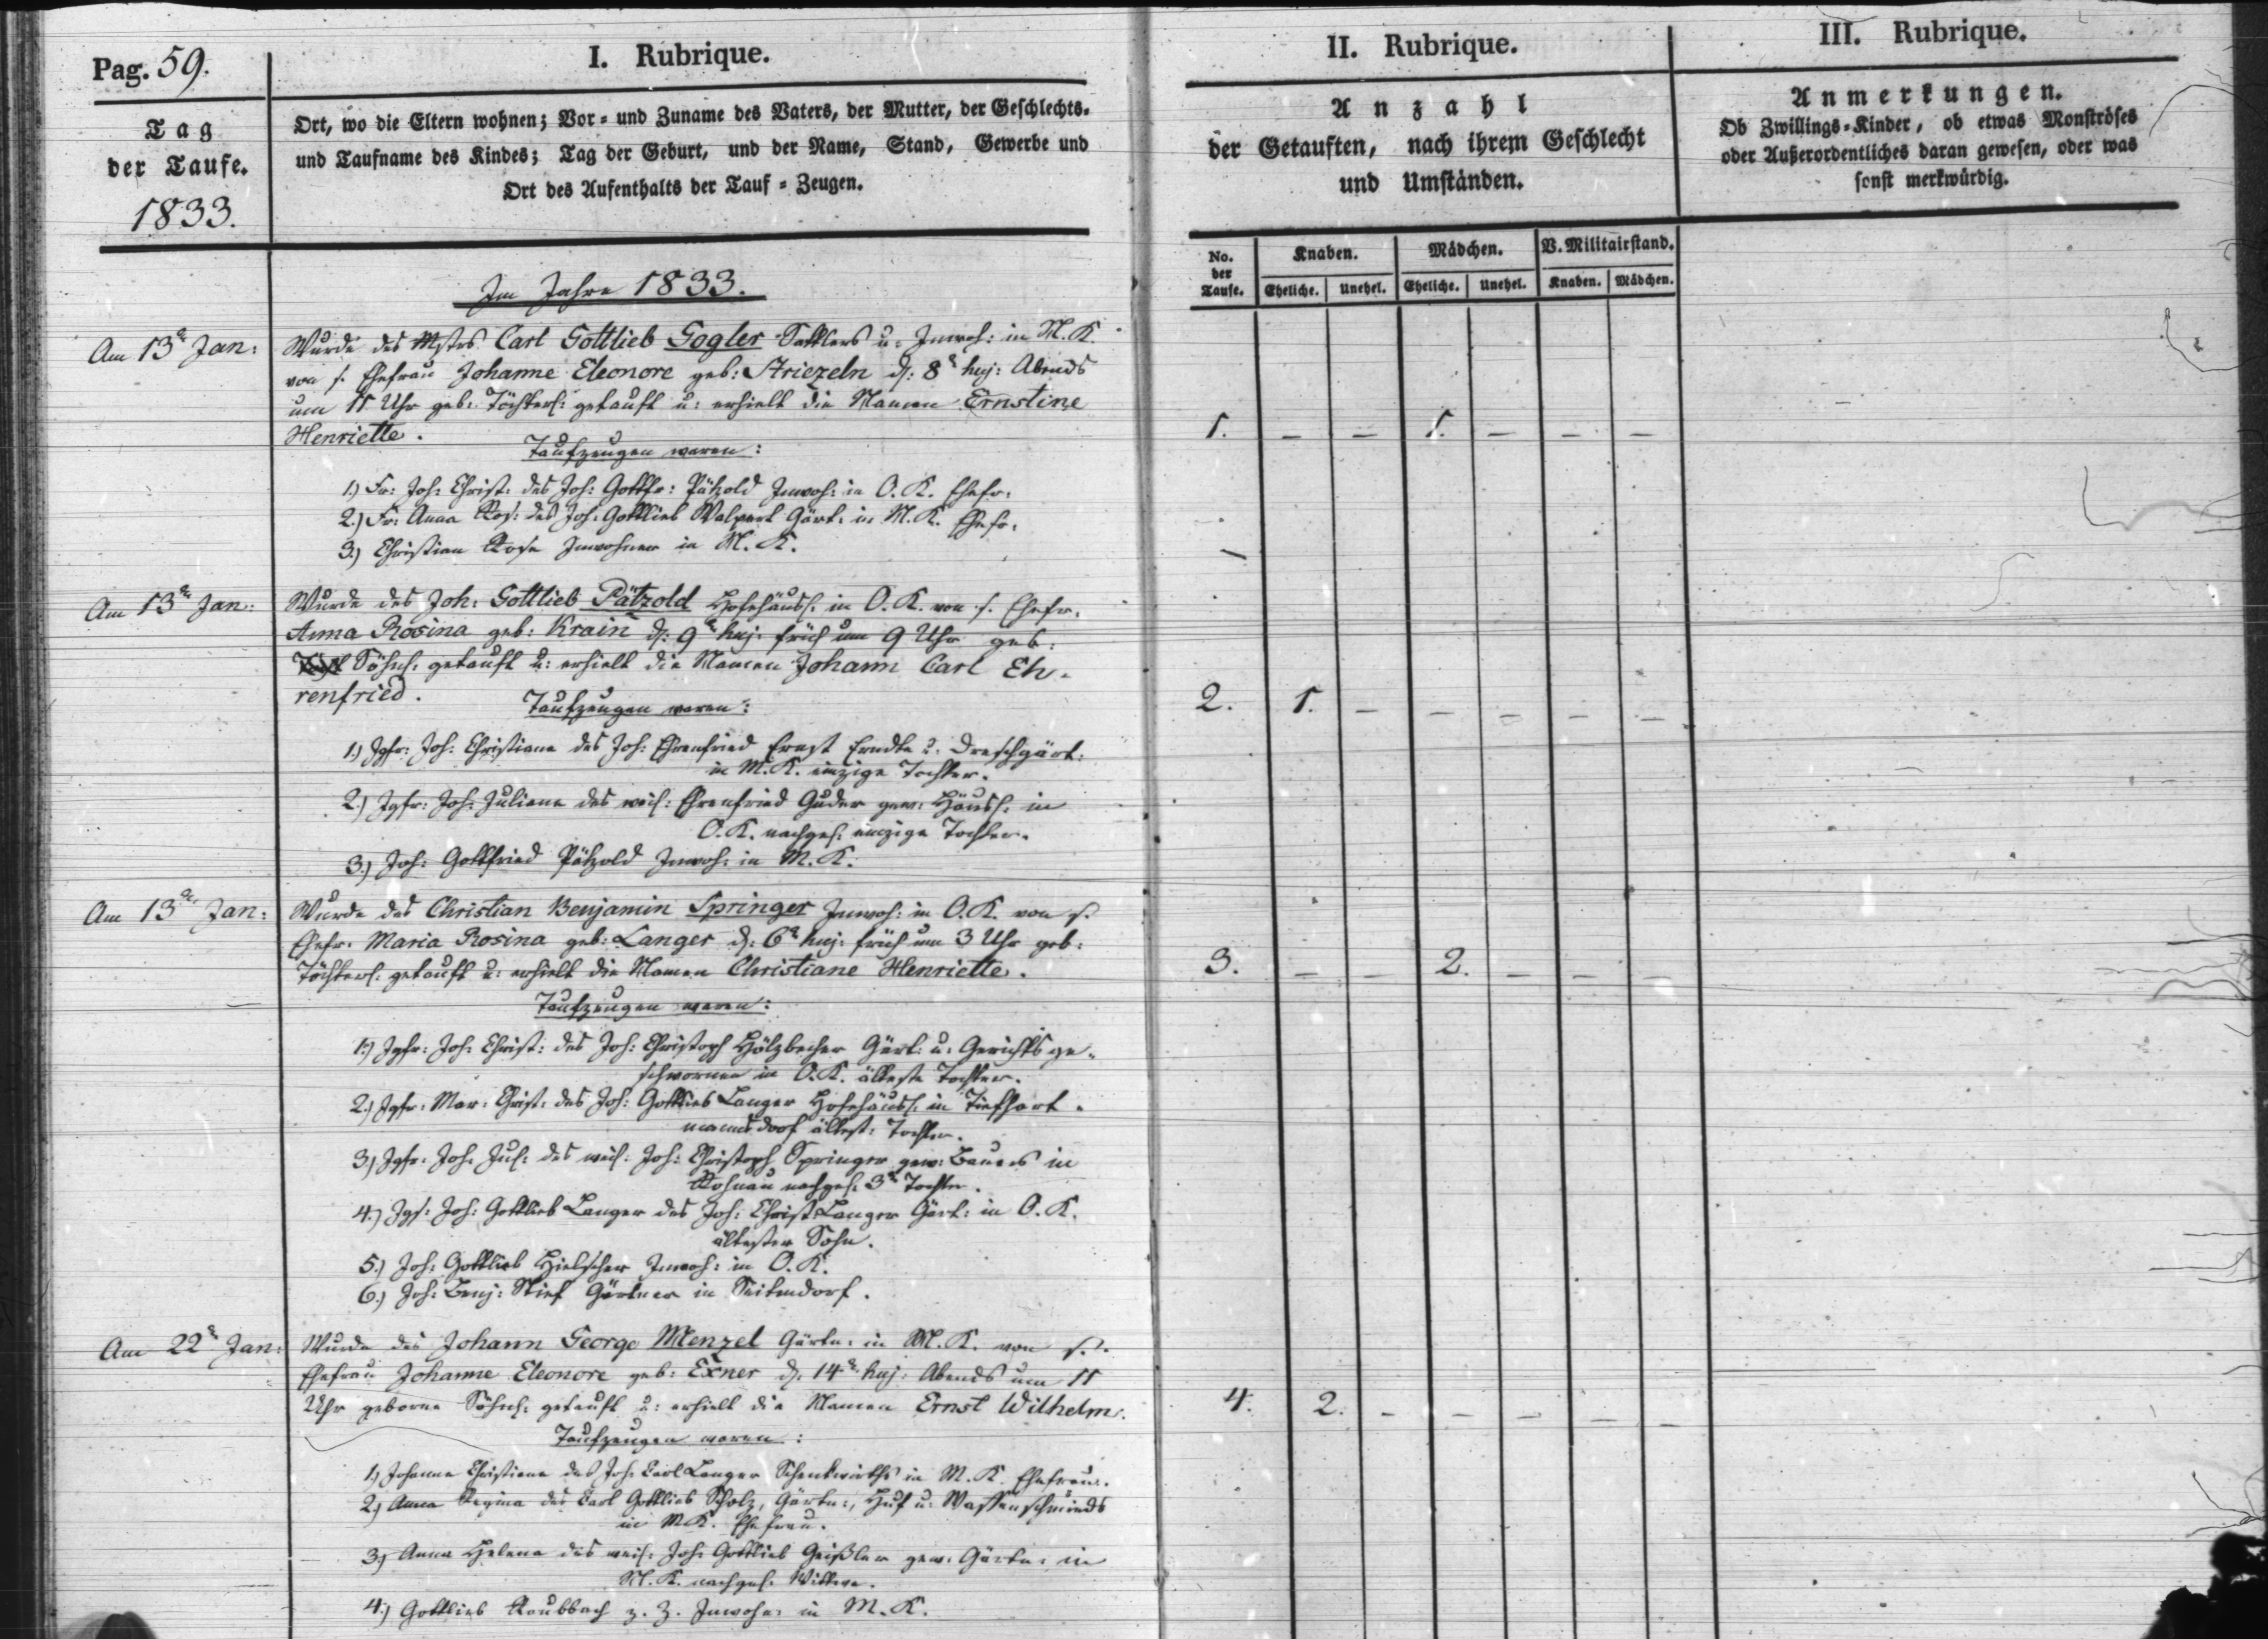 Pag. 59.
I. Rubrique.
II. Rubrique.
III. Rubrique.
Tag
der Taufe.
1833.
Ort, wo die Eltern wohnen; Vor- und Zuname des Vaters, der Mutter, der Geschlechts-
und Taufname des Kindes; Tag der Geburt, und der Name, Stand, Gewerbe und
Ort des Aufenthalts der Tauf-Zeugen.
Anzahl
der Getauften, nach ihrem Geschlecht
und Umständen.
Anmerkungen.
Ob Zwillings-Kinder, ob etwas Monströses
oder Außerordentliches daran gewesen, oder was
sonst merkwürdig.
No. der Taufe.
Knaben.
Mädchen.
V. Militairstand.
Eheliche. Unehel. Eheliche. Unehel. Knaben. Mädchen.
Im Jahre 1833.
Am 13t Jan: Wurde des Mstrs Carl Gottlieb Gogler Sattlers u: Inwoh: in M. K.
von s. Ehefrau Johanne Eleonore geb: Striezeln d: 8t huj: Abends
um 11 Uhr geb: Töchterl: getauft u: erhielt die Namen Ernstine
Henriette.
1. – – 1. – – –
Taufzeugen waren:
1.) Fr: Joh: Christ: des Joh: Gottfr: Pätzold Inwoh: in O. K. Ehefr:
2.) Fr: Anna Ros: des Joh: Gottlieb Walpert Gärt: in M. K. Ehefr:
3.) Christian Rose Inwohner in M. K.
Am 13t Jan: Wurde des Joh: Gottlieb Pätzold Hofehäusl: in O. K. von s. Ehefr.
Anna Rosina geb: Krain d: 9t huj: früh um 9 Uhr geb:
Söhnl: getauft u: erhielt die Namen Johann Carl Eh-
renfried.
2. 1. – – – – –
Taufzeugen waren:
1.) Jgfr: Joh: Christiane des Joh: Ehrenfried Ernst u: Dreschgärt:
in M. K. einzige Tochter.
2.) Jgfr: Joh: Juliane des weil: Ehrenfried Guder gew: Häusl: in
O. K. nachgel: einzige Tochter.
3.) Joh: Gottfried Pätzold Inwoh: in M. K.
Am 13t Jan: Wurde des Christian Benjamin Springer Inwoh: in O. K. von s.
Ehefr: Maria Rosina geb: Langer d: 6t huj: früh um 3 Uhr geb:
Töchterl: getauft u: erhielt die Namen Christiane Henriette.
3. – – 2. – – –
Taufzeugen waren:
1.) Jgfr: Joh: Christ: des Joh: Christoph Hölzbecher Gärt: u: Gerichtsge-
schwornen in O. K. älteste Tochter.
2.) Jgfr: Mar: Christ: des Joh: Gottlieb Langer Hofehäusl: in Tiefhart-
mannsdorf ältest: Tochter.
3.) Jgfr: Joh: Jul: des weil: Joh: Christoph Springer gew: Bauers in
Rohnau nachgel: 3t Tochter.
4.) Jgs: Joh: Gottlieb Langer des Joh: Christ: Langer Gärt: in O. K.
ältester Sohn.
5.) Joh: Gottlieb Hielscher Inwoh: in O. K.
6.) Joh: Benj: Stief Gärtner in Seitendorf.
Am 22t Jan: Wurde des Johann George Menzel Gärtn: in M. K. von s.
Ehefrau Johanne Eleonore geb: Exner d: 14t huj: Abends um 11
Uhr geborne Söhnl: getauft u: erhielt die Namen Ernst Wilhelm.
4. 2. – – – – –
Taufzeugen waren:
1.) Johanne Christiane des Joh: Carl Langer Schenkwirths in M. K. Ehefrau.
2.) Anna Regina des Carl Gottlieb Scholz, Gärtn:, Huf u: Waffenschmieds
in M. K. Ehefrau.
3.) Anna Helena des weil: Joh: Gottlieb Geißler gew: Gärtn: in
M. K. nachgel: Wittwe.
4.) Gottlieb Raubbach z. Z. Inwohn: in M. K.